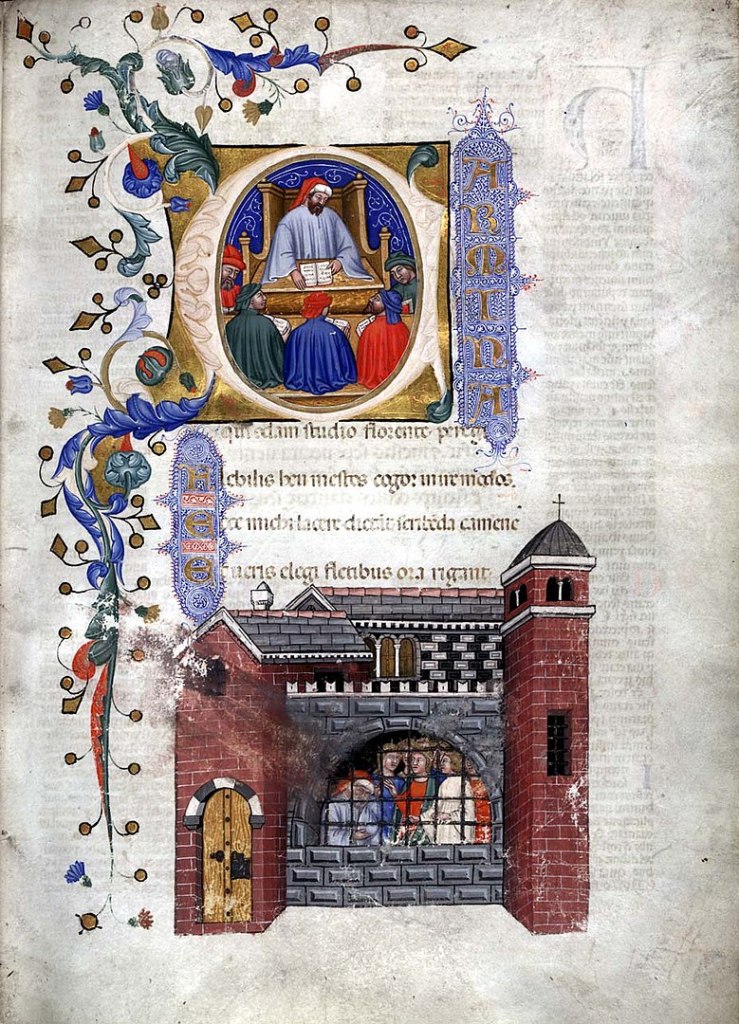 CARMINA
qui qdam studio florente peregi
Flebilis heu mestos cogor inire modos.
Ecce michi lacere dictāt scribēda camene
Et ueris elegi fletibus ora rigant.